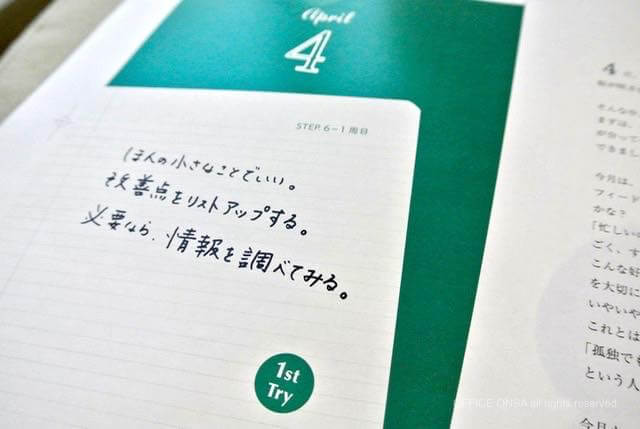 April
4
STEP. 6-1周目
ほんの小さなことでいい。
改善点をリストアップする。
必要なら、情報を調べてみる。
1st
Try
4
そんな
まずは、
が分って
できまし
今月は、
フィード
かな?
「忙しい
ごく、す
こんな好
を大切に
いやいや
これとは
「孤独でも
という人
今月
OFFICE ONSA all rights reserved